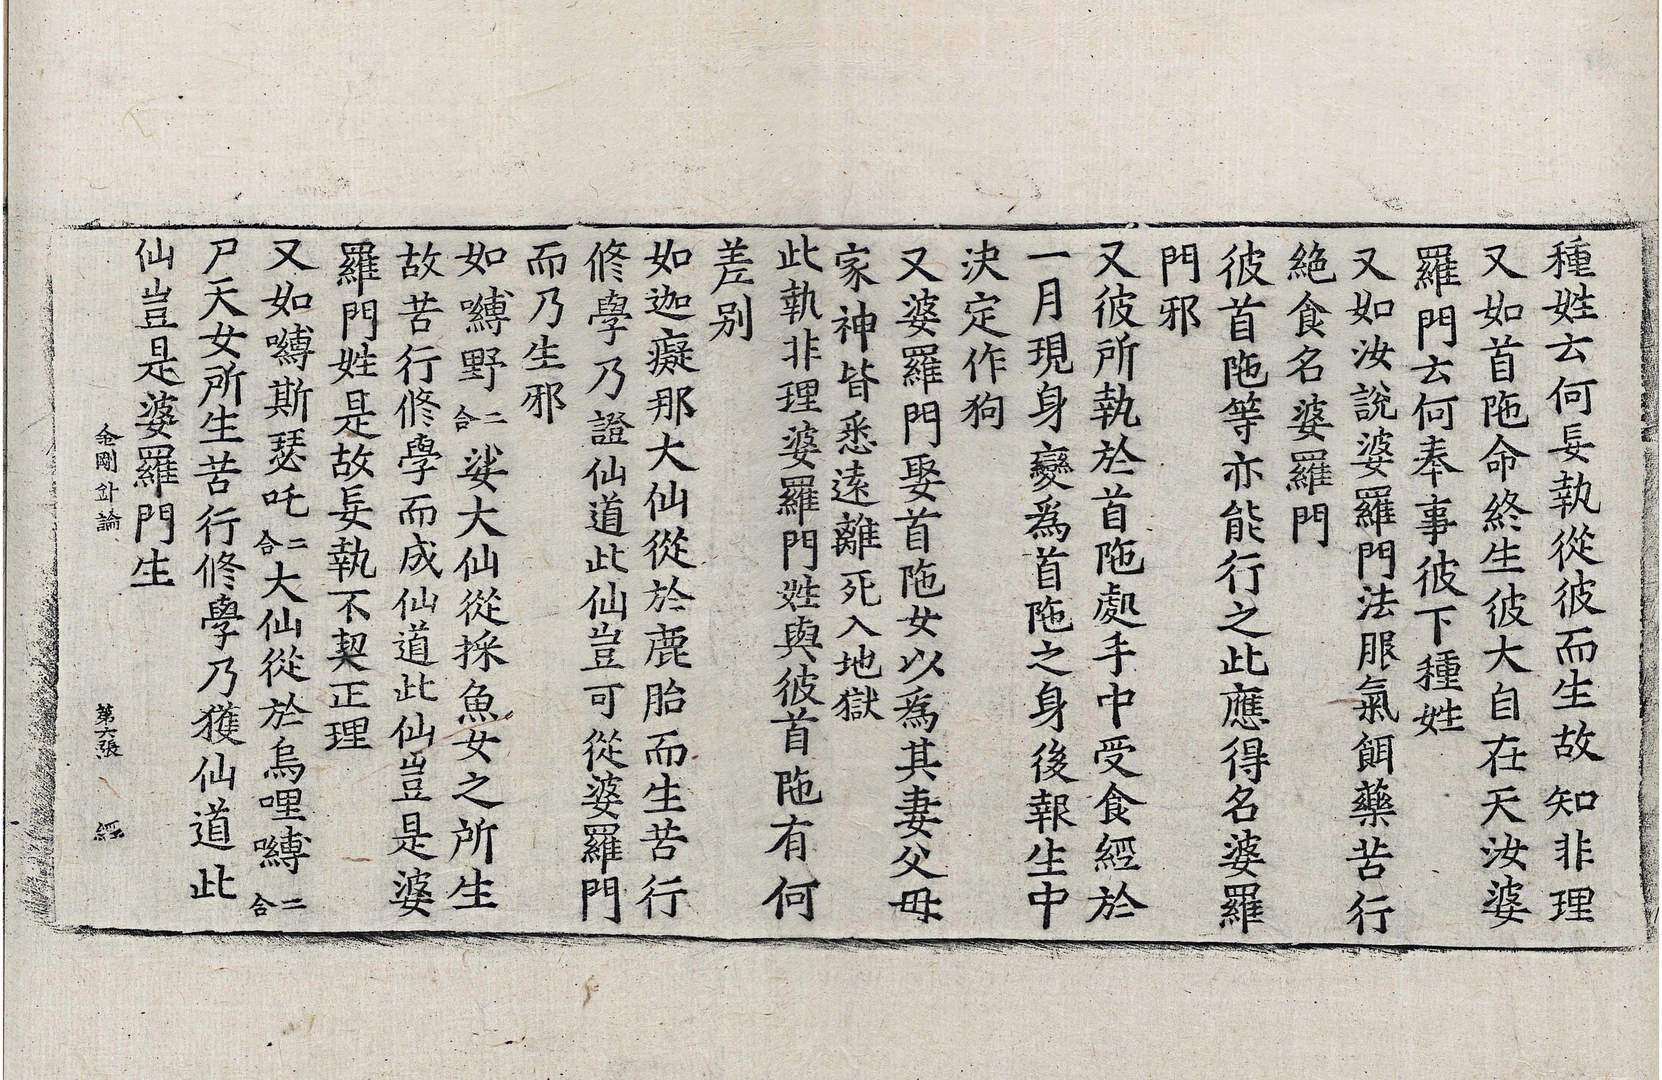 種姓云何妄執從彼而生故知非理
又如首陁命終生彼大自在天汝婆
羅門云何奉事彼下種姓
又如汝說婆羅門法服氣餌藥苦行
絶食名婆羅門
彼首陁等亦能行之此應得名婆羅
門邪
又彼所執於首陁處手中受食經於
一月現身變爲首陁之身後報生中
決定作狗
又婆羅門娶首陁女以爲其妻父母
家神皆悉遠離死入地獄
此執非理婆羅門姓與彼首陁有何
差別
如迦癡那大仙從於鹿胎而生苦行
修學乃證仙道此仙豈可從婆羅門
而乃生邪
如嚩野二合娑大仙從採魚女之所生
故苦行修學而成仙道此仙豈是婆
羅門姓是故妄執不契正理
又如嚩斯瑟吒二合大仙從於烏哩嚩二合
尸天女所生苦行修學乃獲仙道此
仙豈是婆羅門生
金剛針論 第六張 經